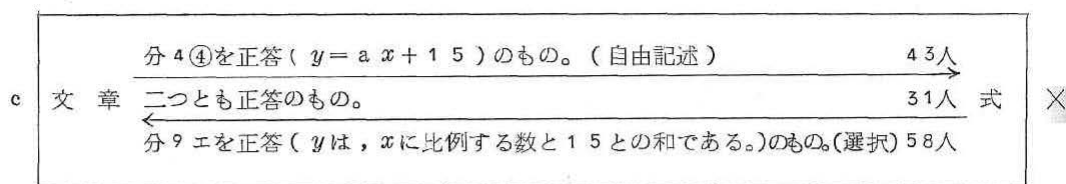 分4④を正答(y=ax+15)のもの。(自由記述) 43人
c 文章 二つとも正答のもの。 31人 式 ×
分9エを正答(yは,xに比例する数と15との和である。)のもの。(選択)58人